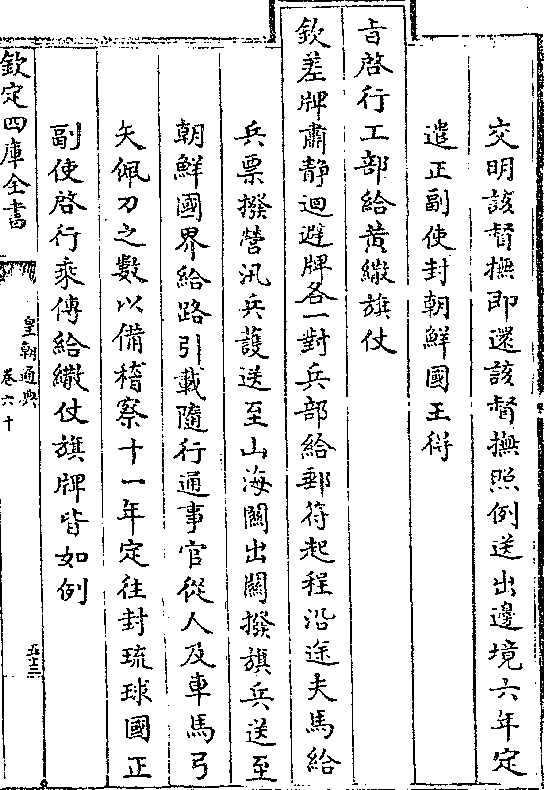 交明該督撫即還該督撫照例送出邊境六年定
遣正副使封朝鮮國王得
旨啓行工部給黃繖旗仗
欽差牌肅静迴避牌各一對兵部給郵符起程沿途夫馬給
兵票撥營汛兵護送至山海關出關撥旗兵送至
朝鮮國界給路引載隨行通事官從人及車馬弓
矢佩刀之數以備稽察十一年定往封琉球國正
副使啓行乘傳給繖仗旗牌皆如例
欽定四庫全書
皇朝通典
卷六十
五十三